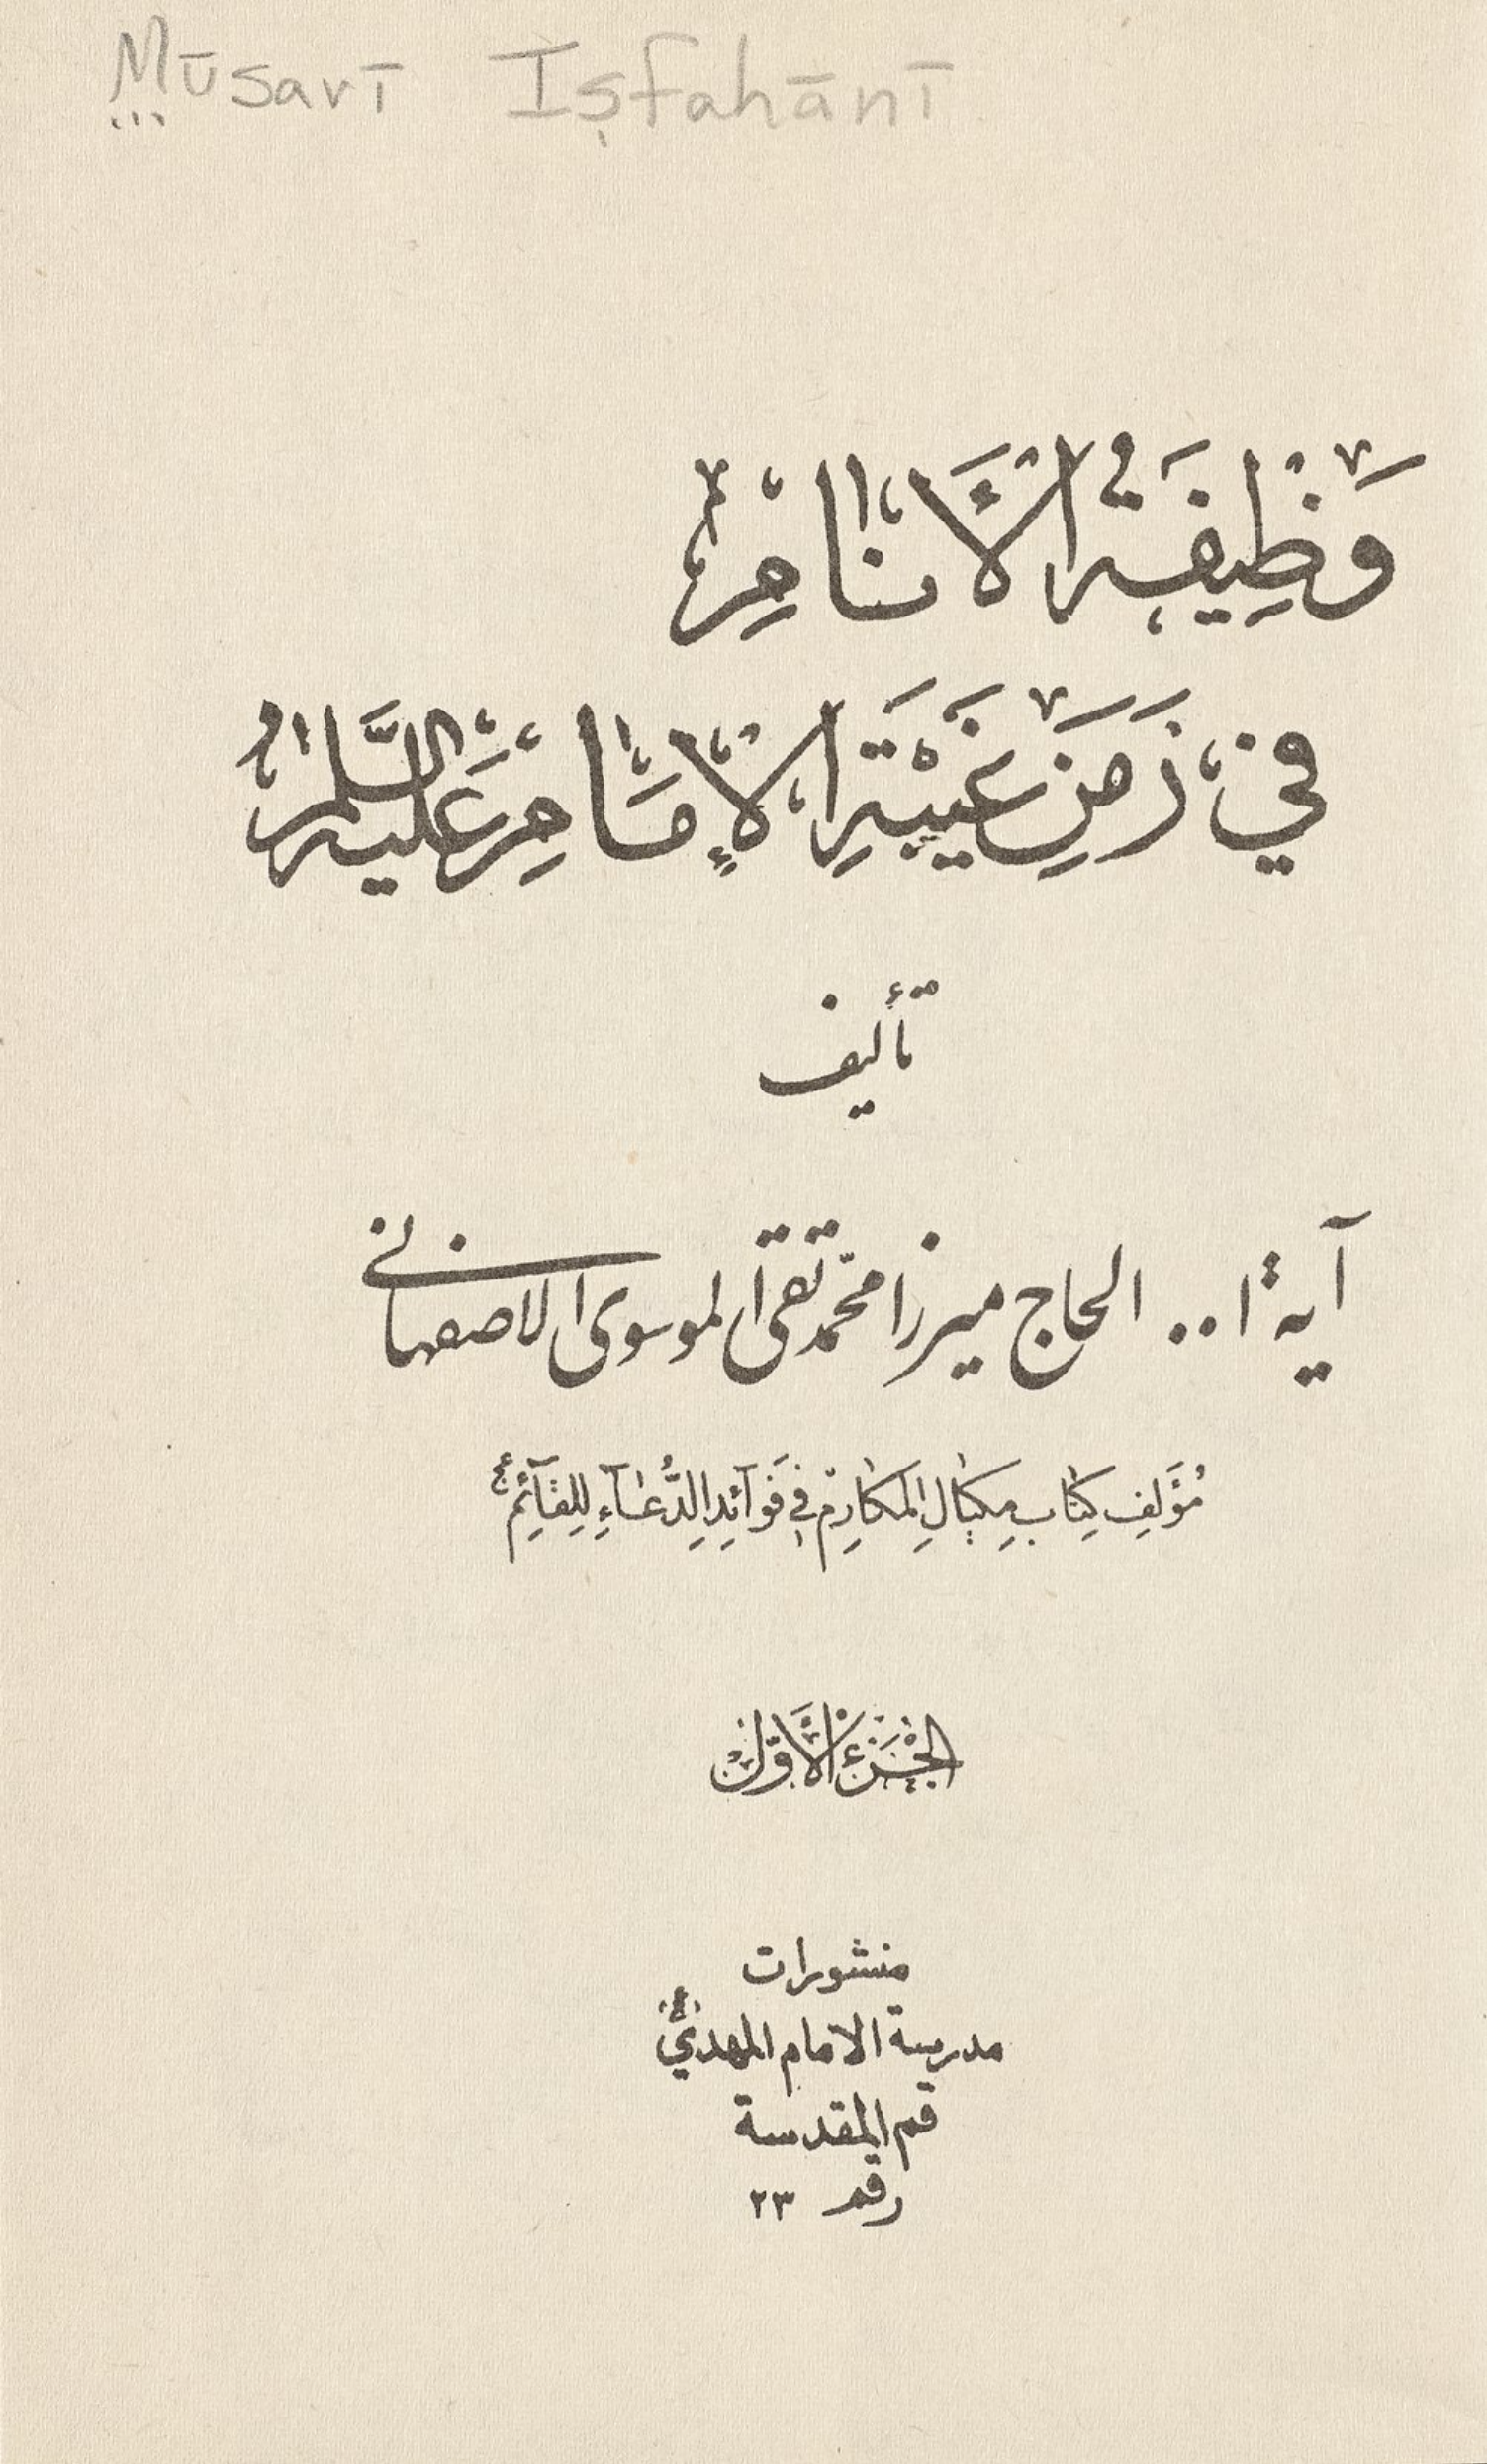 Mūsavī Iṣfahānī
وَظِيفَةُ الْأَنَامِ
فِي زَمَنِ غَيْبَةِ الْإِمَامِ عَلَيْهِ السَّلَامُ
تأليف
آية ا.. الحاج ميرزا محمّد تقى الموسوى الاصفهانى
مُؤَلِفِ كِتَابِ مِكْيَالِ الْمَكَارِمِ فِي فَوَآئِدِ الدُّعَآءِ لِلْقَآئِمِ ع
الْجُزْءُ الْأَوَّلُ
منشورات
مدرسة الامام المهدي
قم المقدسة
رقم ٢٣